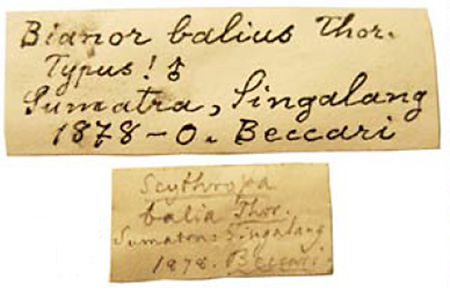 Bianor balius Thor.
Typus! ♂
Sumatra, Singalang
1878 – O. Beccari
Scythropa
balia Thor.
Singalang
1878. Beccari.